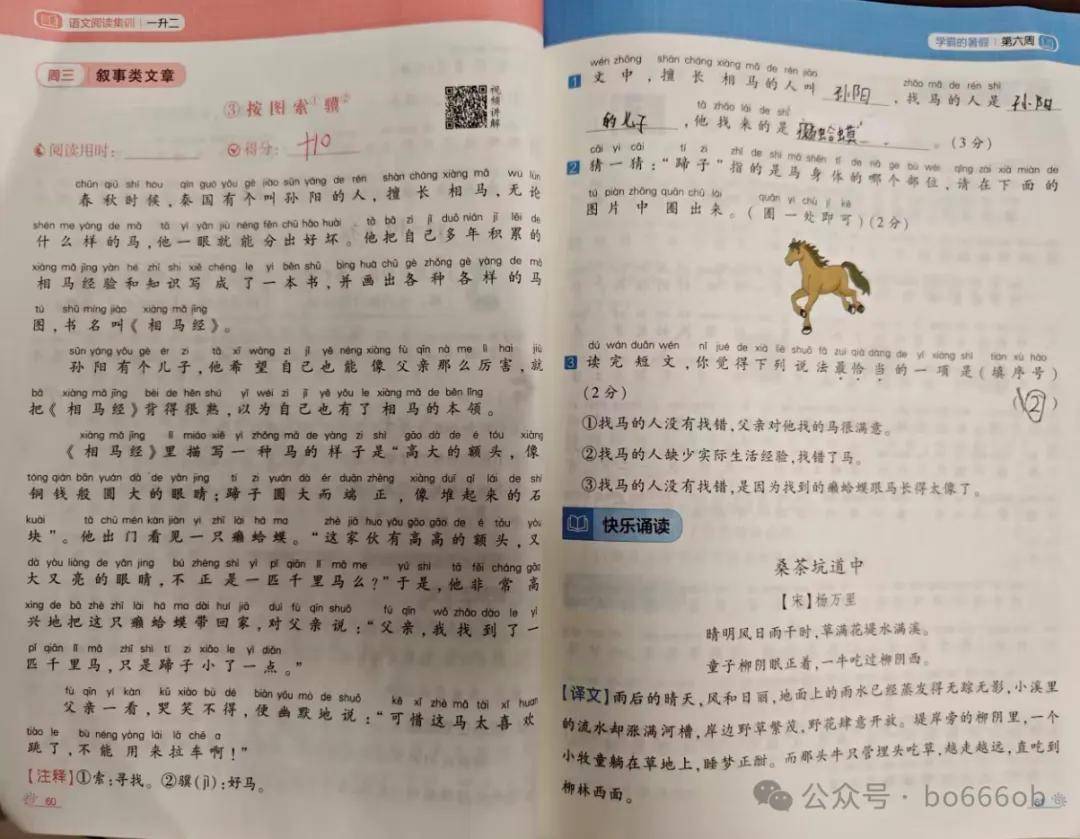 语文阅读集训 一升二
周三 叙事类文章
③按图索①骥②
视频讲解
阅读用时：
得分： +10
chūn qiū shí hou qín guó yǒu gè jiào sūn yáng de rén shàn cháng xiàng mǎ wú lùn
春秋时候，秦国有个叫孙阳的人，擅长相马，无论
shén me yàng de mǎ tā yì yǎn jiù néng fēn chū hǎo huài tā bǎ zì jǐ duō nián jī lěi de
什么样的马，他一眼就能分出好坏。他把自己多年积累的
xiàng mǎ jīng yàn hé zhī shi xiě chéng le yì běn shū bìng huà chū gè zhǒng gè yàng de mǎ
相马经验和知识写成了一本书，并画出各种各样的马
tú shū míng jiào xiàng mǎ jīng
图，书名叫《相马经》。
sūn yáng yǒu gè ér zi tā xī wàng zì jǐ yě néng xiàng fù qīn nà me lì hai jiù
孙阳有个儿子，他希望自己也能像父亲那么厉害，就
bǎ xiàng mǎ jīng bèi de hěn shú yǐ wéi zì jǐ yě yǒu le xiàng mǎ de běn lǐng
把《相马经》背得很熟，以为自己也有了相马的本领。
xiàng mǎ jīng lǐ miáo xiě yì zhǒng mǎ de yàng zi shì gāo dà de é tóu xiàng
《相马经》里描写一种马的样子是“高大的额头，像
tóng qián bān yuán dà de yǎn jing tí zi yuán dà ér duān zhèng xiàng duī qǐ lái de shí
铜钱般圆大的眼睛；蹄子圆大而端正，像堆起来的石
kuài tā chū mén kàn jiàn yì zhī lài há ma zhè jiā huo yǒu gāo gāo de é tóu yòu
块”。他出门看见一只癞蛤蟆。“这家伙有高高的额头，又
dà yòu liàng de yǎn jing bú zhèng shì yì pǐ qiān lǐ mǎ me yú shì tā fēi cháng gāo
大又亮的眼睛，不正是一匹千里马么？”于是，他非常高
xìng de bǎ zhè zhī lài há ma dài huí jiā duì fù qīn shuō fù qīn wǒ zhǎo dào le yì
兴地把这只癞蛤蟆带回家，对父亲说：“父亲，我找到了一
pǐ qiān lǐ mǎ zhǐ shì tí zi xiǎo le yì diǎn
匹千里马，只是蹄子小了一点。”
fù qīn yí kàn kū xiào bù dé biàn yōu mò de shuō kě xī zhè mǎ tài xǐ huan
父亲一看，哭笑不得，便幽默地说：“可惜这马太喜欢
tiào le bù néng yòng lái lā chē a
跳了，不能用来拉车啊！”
【注释】①索：寻找。②骥(jì)：好马。
60
学霸的暑假 第六周
wén zhōng shàn cháng xiàng mǎ de rén jiào zhǎo mǎ de rén shì
1 文中，擅长相马的人叫 孙阳 ，找马的人是 孙阳
tā zhǎo lái de shì
的儿子 ，他找来的是 癞蛤蟆 。(3分)
cāi yi cāi tí zi zhǐ de shì mǎ shēn tǐ de nǎ ge bù wèi qǐng zài xià miàn de
2 猜一猜：“蹄子”指的是马身体的哪个部位，请在下面的
tú piàn zhōng quān chū lái quān yí chù jí kě
图片中圈出来。(圈一处即可)(2分)
dú wán duǎn wén nǐ jué de xià liè shuō fǎ zuì qià dàng de yí xiàng shì tián xù hào
3 读完短文，你觉得下列说法最恰当的一项是(填序号)
(2分) (②)
①找马的人没有找错，父亲对他找的马很满意。
②找马的人缺少实际生活经验，找错了马。
③找马的人没有找错，是因为找到的癞蛤蟆跟马长得太像了。
快乐诵读
桑茶坑道中
【宋】杨万里
晴明风日雨干时，草满花堤水满溪。
童子柳阴眠正着，一牛吃过柳阴西。
【译文】雨后的晴天，风和日丽，地面上的雨水已经蒸发得无踪无影，小溪里
的流水却涨满河槽，岸边野草繁茂，野花肆意开放。堤岸旁的柳阴里，一个
小牧童躺在草地上，睡梦正酣。而那头牛只管埋头吃草，越走越远，直吃到
柳林西面。
公众号·bo666ob